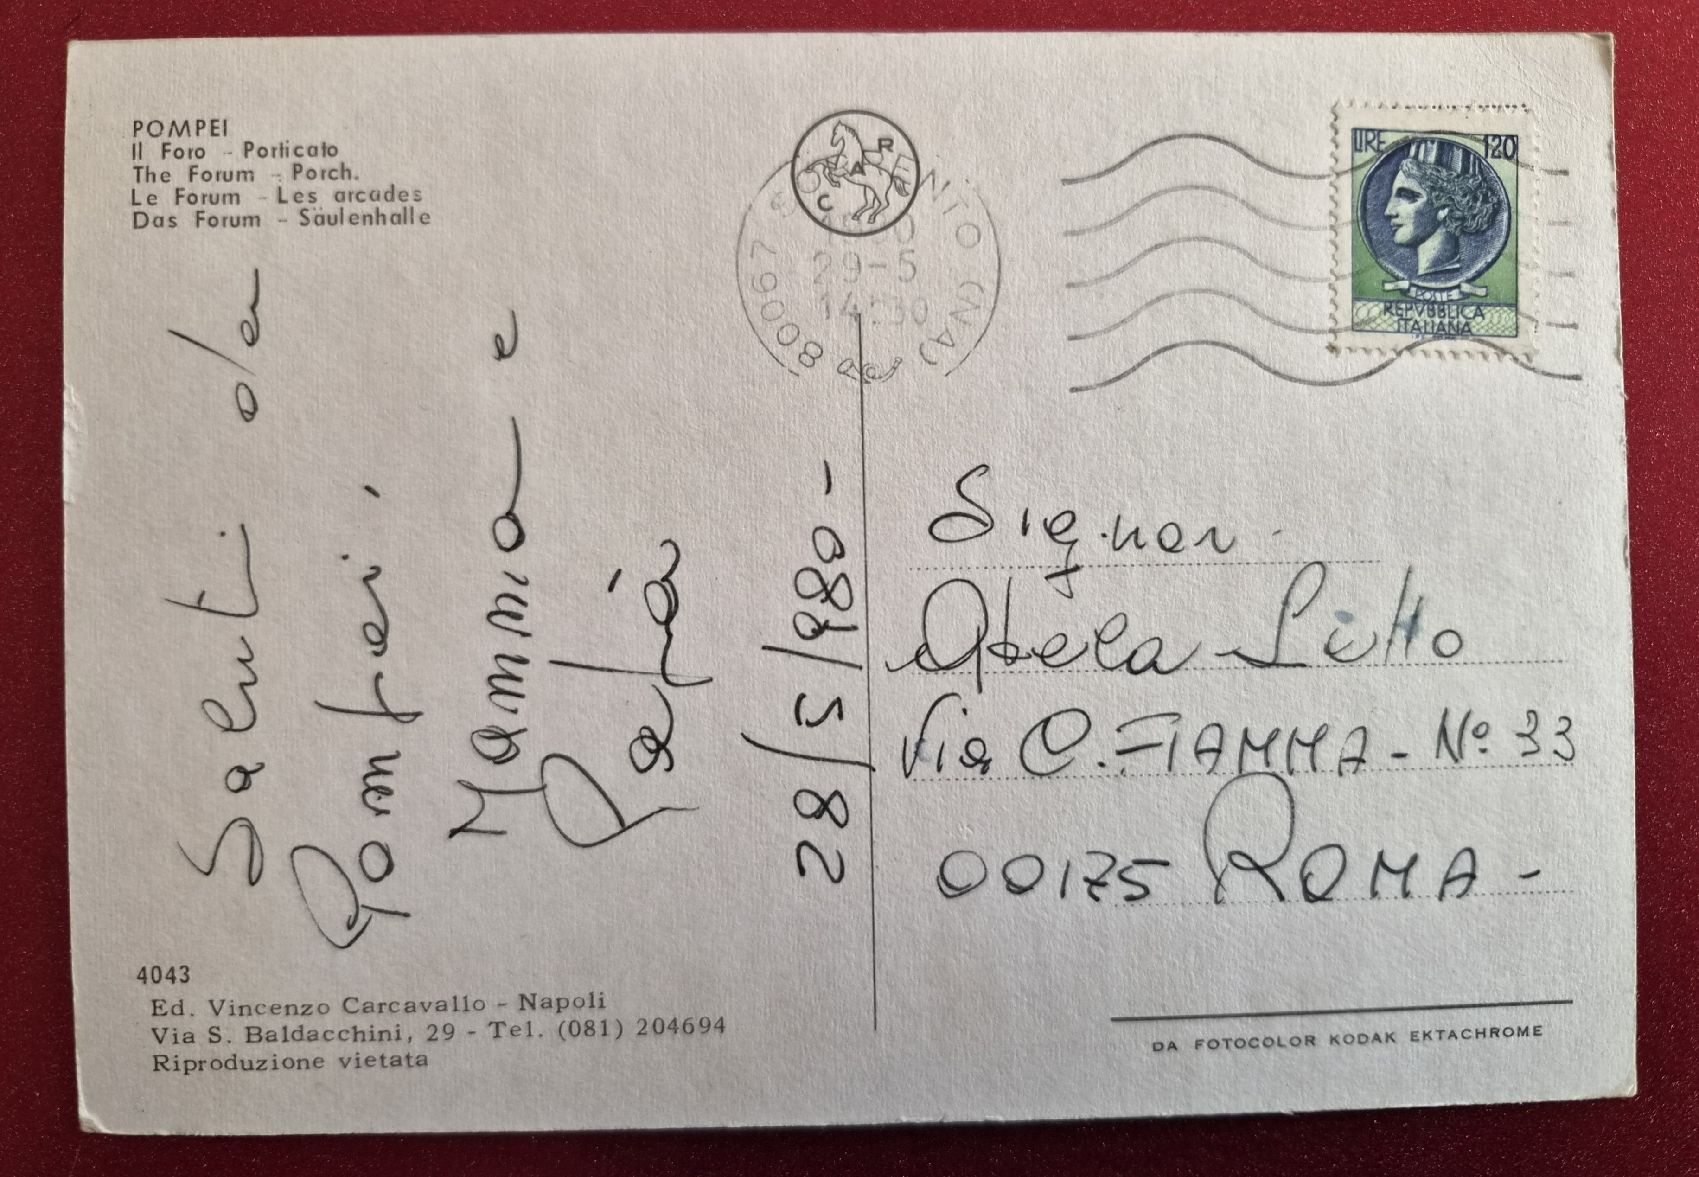 POMPEI
Il Foro - Porticato
The Forum - Porch.
Le Forum - Les arcades
Das Forum - Säulenhalle
Saluti da
Pompei,
Mamma e
Papà
28/5/980-
4043
Ed. Vincenzo Carcavallo - Napoli
Via S. Baldacchini, 29 - Tel. (081) 204694
Riproduzione vietata
CAR
80067 SORRENTO (NA)
29-5
14:30
LIRE 120
POSTE
REPVBBLICA
ITALIANA
Via C. FIAMMA - Nº 33
00175 ROMA -
DA FOTOCOLOR KODAK EKTACHROME